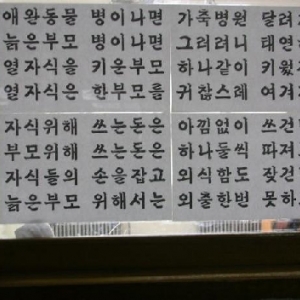 애완동물 병이나면 가축병원 달려
늙은부모 병이나면 그려려니 태연
열자식을 키운부모 하나같이 키웠
열자식은 한부모를 귀찮스레 여겨
자식위해 쓰는돈은 아낌없이 쓰건
부모위해 쓰는돈은 하나둘씩 따져
자식들의 손을잡고 외식함도 잦건
늙은부모 위해서는 외출한번 못하